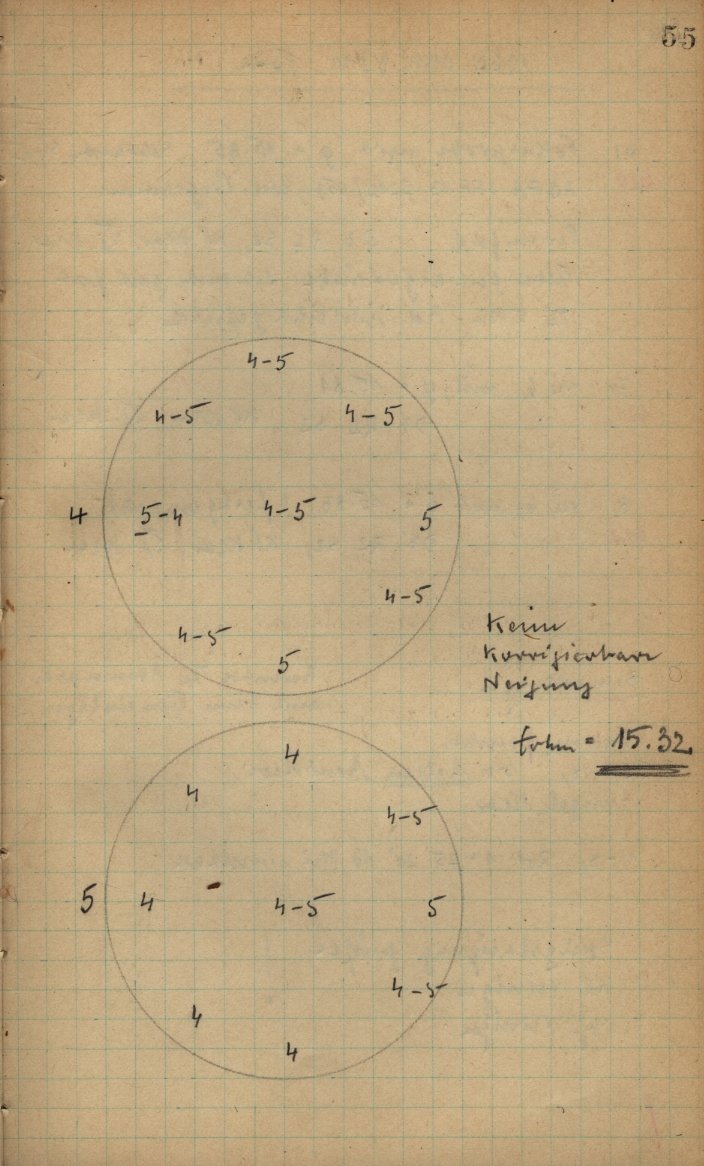 55
4-5
4-5 4-5
4 5-4 4-5 5
4-5
4-5
5
Keine
Korrigierbare
Neigung
= 15.32
4
4
4-5
5 4 4-5 5
4-5
4
4